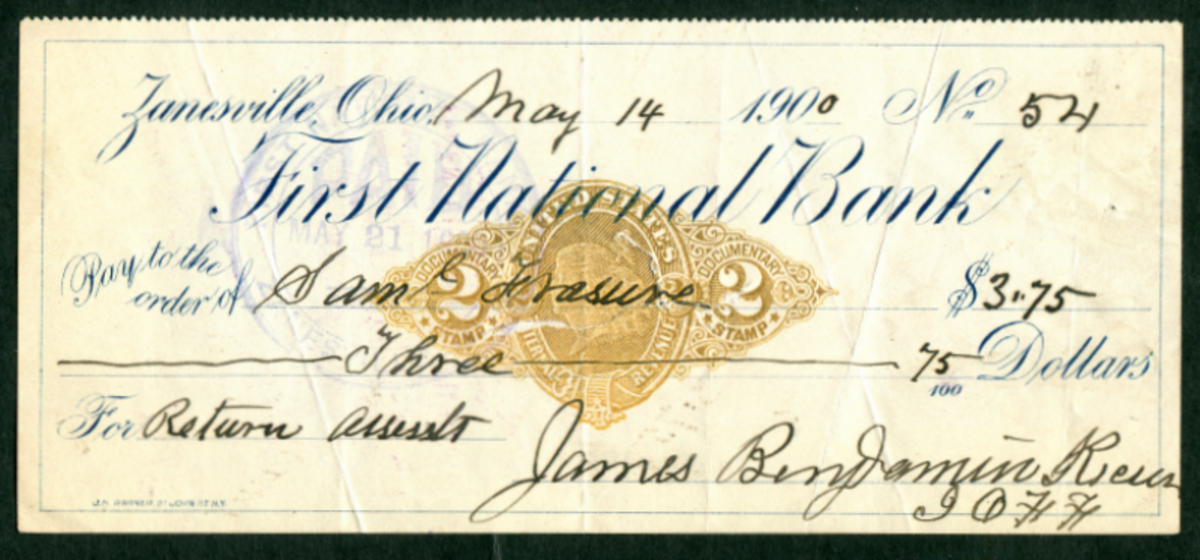 Zanesville, Ohio, May 14 1900 No. 54
First National Bank
MAY 21
UNITED STATES
DOCUMENTARY 2 STAMP
DOCUMENTARY 2 STAMP
INTERNAL REVENUE
Pay to the order of Sam Frasure $3.75
Three 75/100 Dollars
For Return
James Benjamin